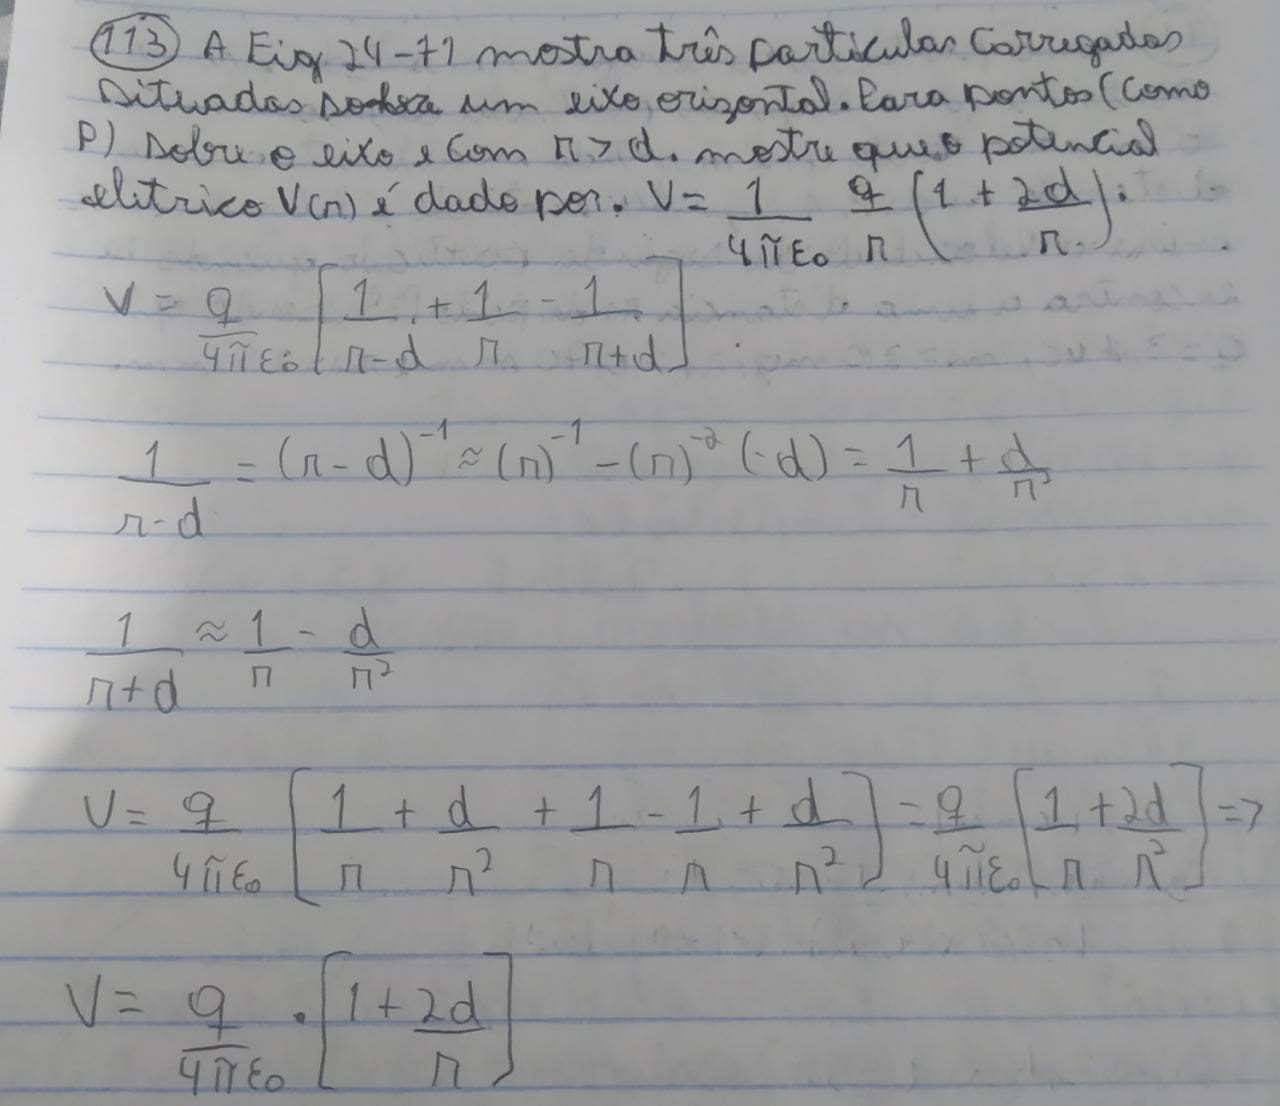 113 A Fig 24-71 mostra três particulas Carregadas
Situadas sobre um eixo orizontal. Para pontos (como
P) sobre o eixo e com r > d. mostre que o potencial
elitrico V(r) é dado por. V = 1/4πε₀ q/r (1 + 2d/r).
V = q/4πε₀ [1/r-d + 1/r - 1/r+d]
1/r-d = (r-d)⁻¹ ≈ (r)⁻¹ - (r)⁻² (-d) = 1/r + d/r²
1/r+d ≈ 1/r - d/r²
V = q/4πε₀ [1/r + d/r² + 1/r - 1/r + d/r²] = q/4πε₀ [1/r + 2d/r²] =>
V = q/4πε₀ . [1 + 2d/r]